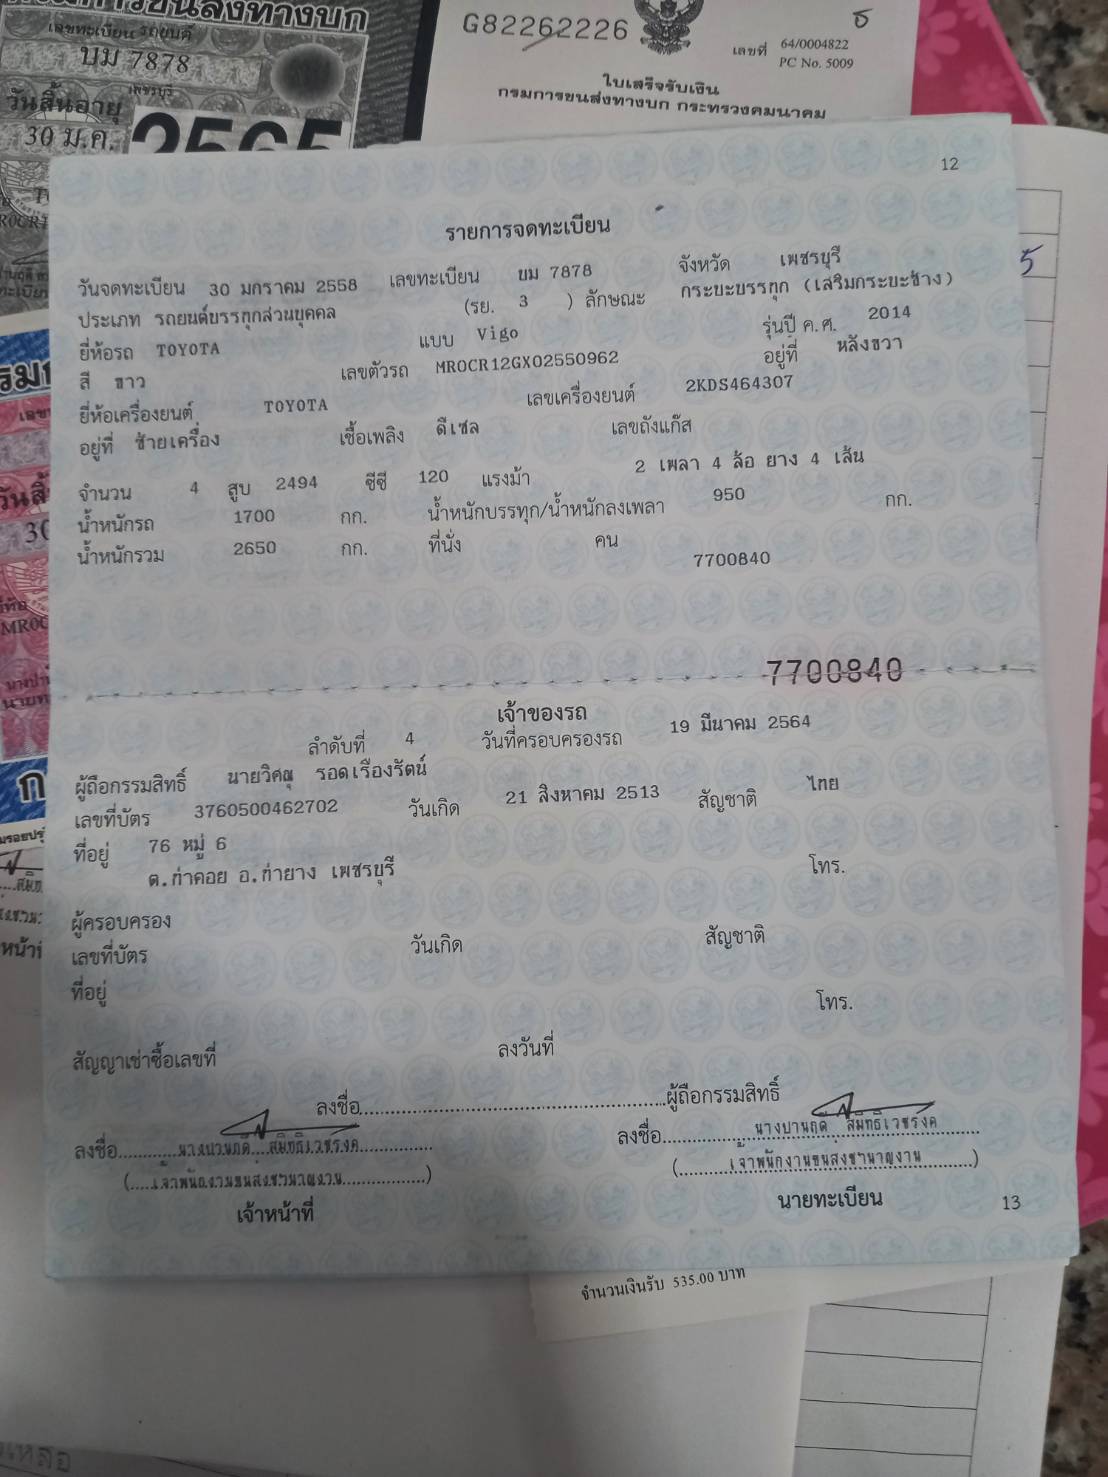 กรมการขนส่งทางบก
เลขทะเบียน รถยนต์
บม 7878
เพชรบุรี
วันสิ้นอายุ
30 ม.ค.
2565
G82262226
เลขที่ 64/0004822
PC No. 5009
ใบเสร็จรับเงิน
กรมการขนส่งทางบก กระทรวงคมนาคม
12
รายการจดทะเบียน
วันจดทะเบียน 30 มกราคม 2558 เลขทะเบียน บม 7878 จังหวัด เพชรบุรี
ประเภท รถยนต์บรรทุกส่วนบุคคล (รย. 3 ) ลักษณะ กระบะบรรทุก (เสริมกระบะข้าง)
ยี่ห้อรถ TOYOTA แบบ Vigo รุ่นปี ค.ศ. 2014
สี ขาว เลขตัวรถ MR0CR12GX02550962 อยู่ที่ หลังขวา
ยี่ห้อเครื่องยนต์ TOYOTA เลขเครื่องยนต์ 2KDS464307
อยู่ที่ ซ้ายเครื่อง เชื้อเพลิง ดีเซล เลขถังแก๊ส
จำนวน 4 สูบ 2494 ซีซี 120 แรงม้า 2 เพลา 4 ล้อ ยาง 4 เส้น
น้ำหนักรถ 1700 กก. น้ำหนักบรรทุก/น้ำหนักลงเพลา 950 กก.
น้ำหนักรวม 2650 กก. ที่นั่ง คน
7700840
7700840
เจ้าของรถ
ลำดับที่ 4 วันที่ครอบครองรถ 19 มีนาคม 2564
ผู้ถือกรรมสิทธิ์ นายวิศณุ รอดเรืองรัตน์
เลขที่บัตร 3760500462702 วันเกิด 21 สิงหาคม 2513 สัญชาติ ไทย
ที่อยู่ 76 หมู่ 6
ต.ท่าคอย อ.ท่ายาง เพชรบุรี โทร.
ผู้ครอบครอง
เลขที่บัตร วันเกิด สัญชาติ
ที่อยู่
โทร.
สัญญาเช่าซื้อเลขที่ ลงวันที่
ลงชื่อ ผู้ถือกรรมสิทธิ์
ลงชื่อ นางปานฤดี สมิทธิเวชรงค์ ลงชื่อ นางปานฤดี สมิทธิเวชรงค์
(เจ้าพนักงานขนส่งชำนาญงาน) (เจ้าพนักงานขนส่งชำนาญงาน)
เจ้าหน้าที่ นายทะเบียน
13
จำนวนเงินรับ 535.00 บาท
5